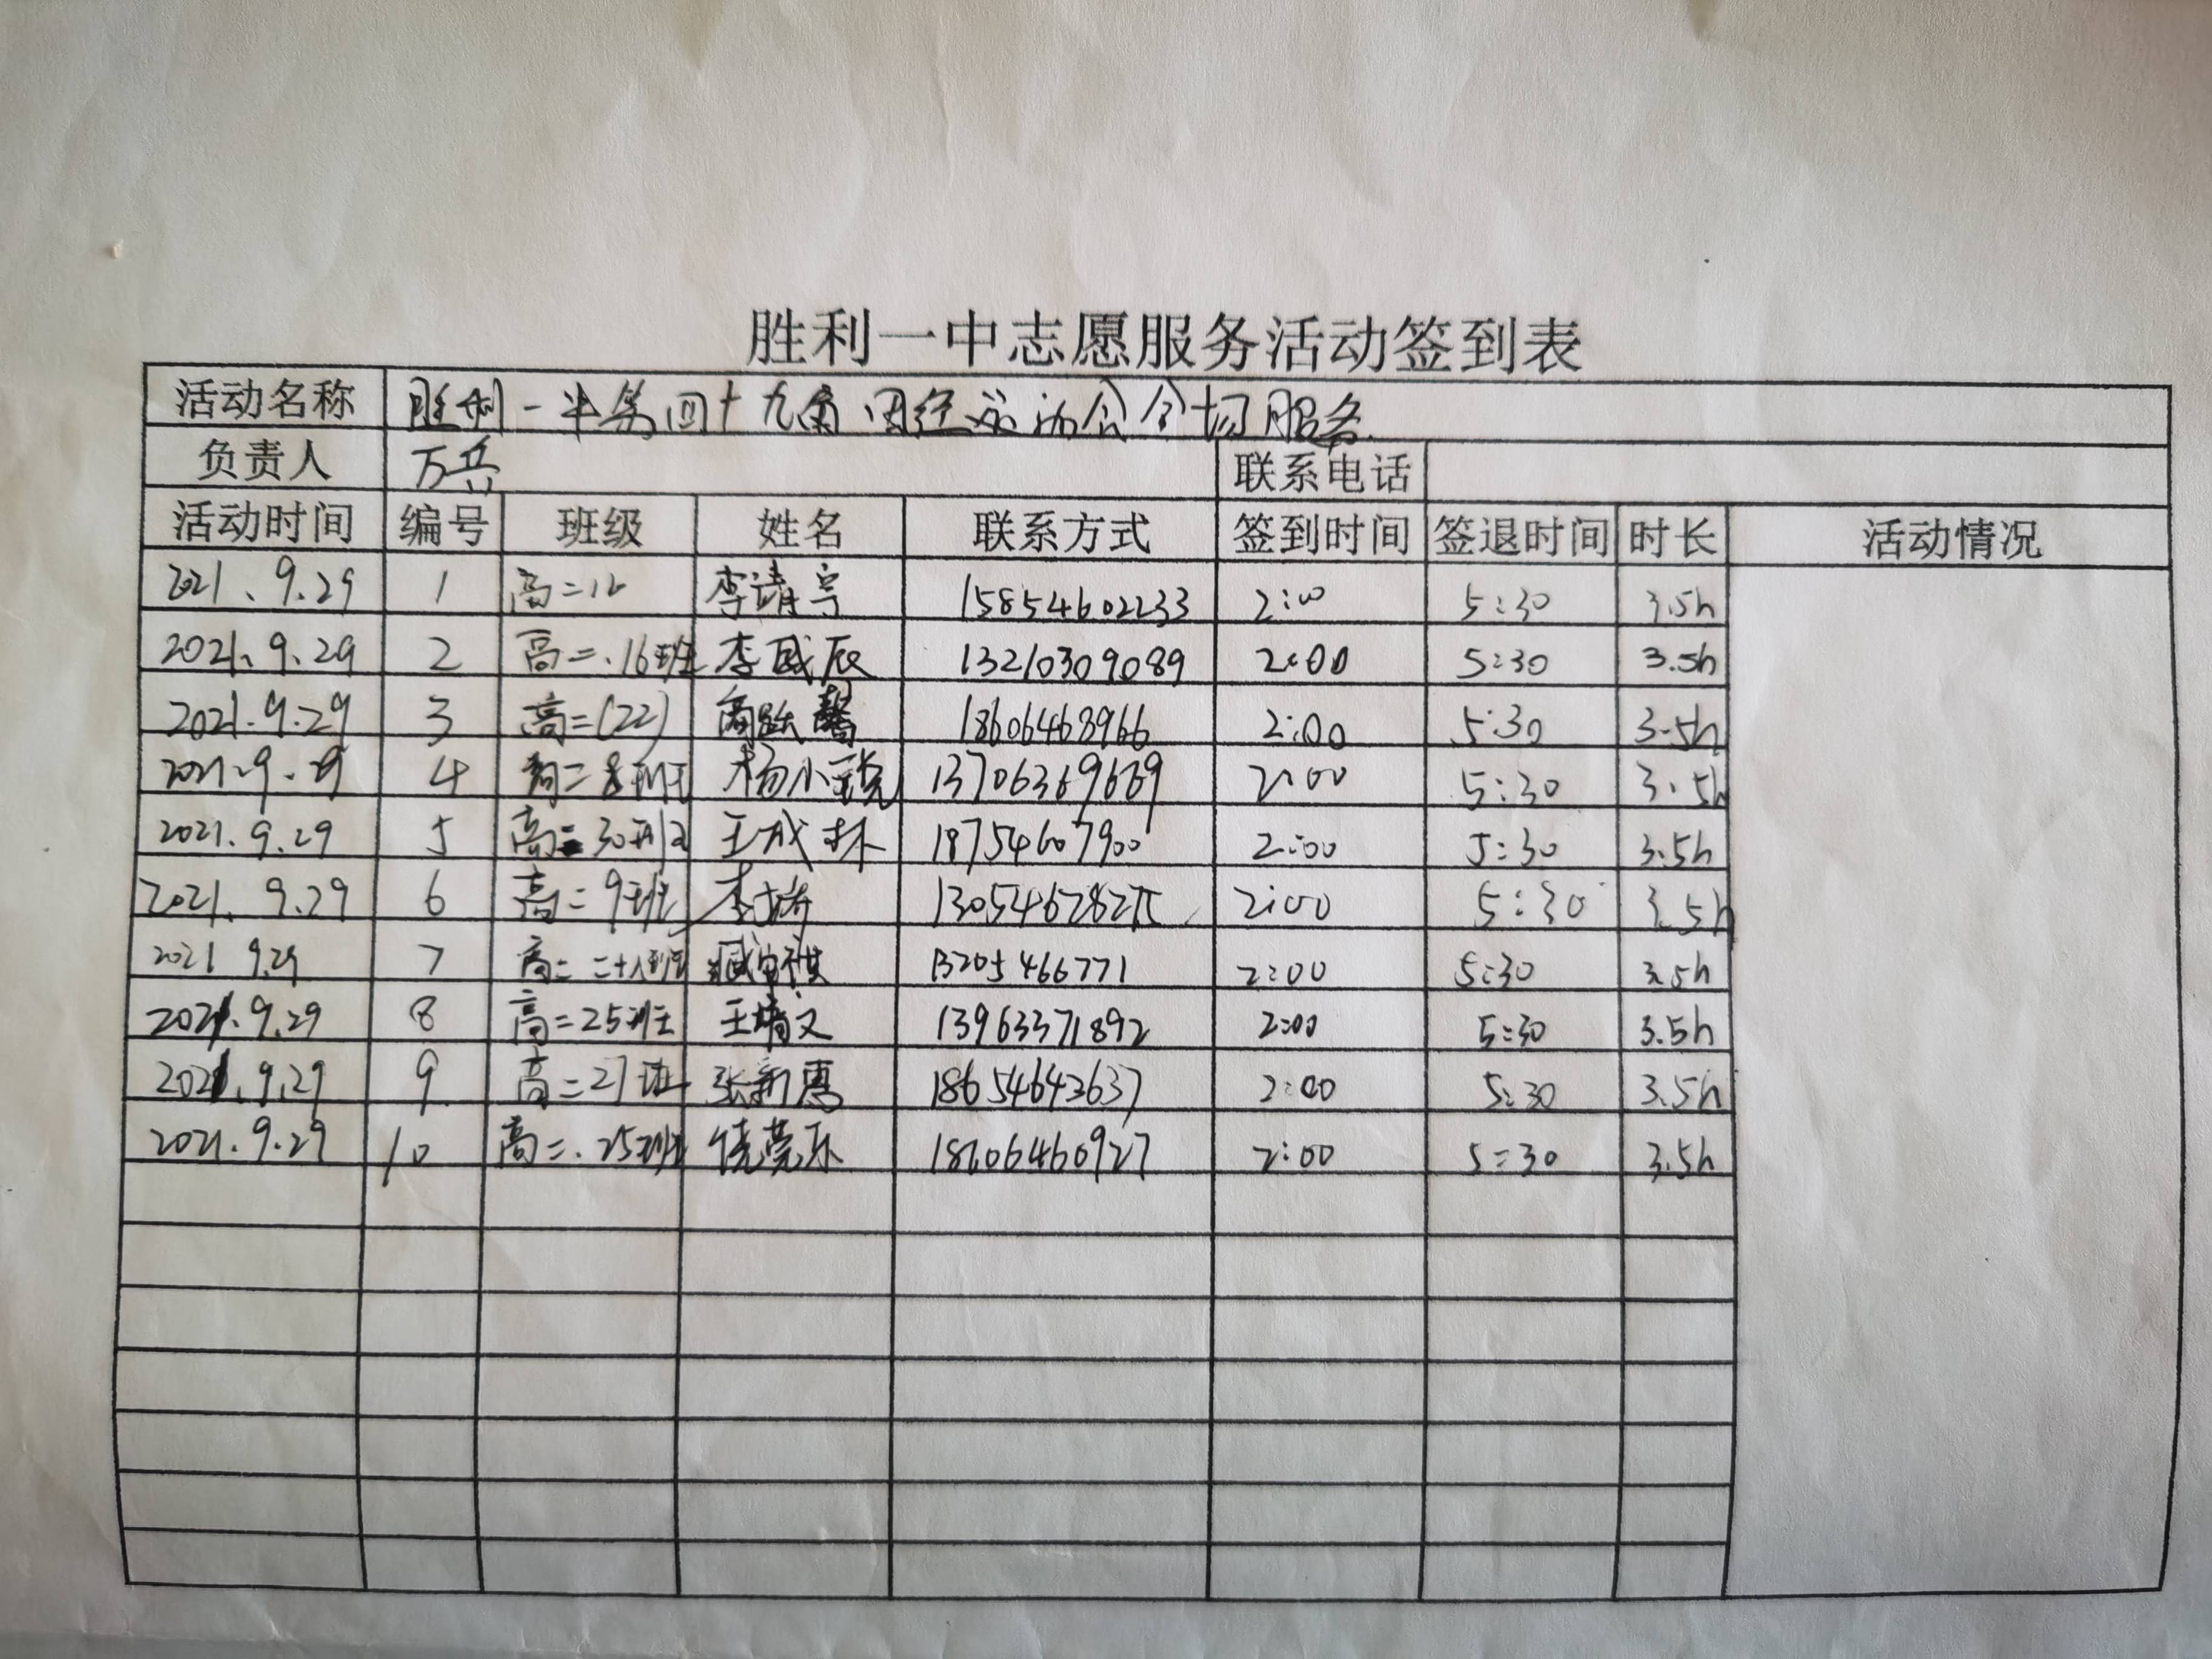 胜利一中志愿服务活动签到表
活动名称 胜利一中第四十九届田径运动会会场服务
负责人 万兵 联系电话
活动时间 编号 班级 姓名 联系方式 签到时间 签退时间 时长 活动情况
2021、9.29 1 高二16 李靖宇 15854602233 2:00 5:30 3.5h
2021、9.29 2 高二.16班 李威辰 13210309089 2:00 5:30 3.5h
2021.9.29 3 高二(22) 馨 18606468966 2:00 5:30 3.5h
2021.9.29 4 高二8班 杨小锐 13706369669 2:00 5:30 3.5h
2021.9.29 5 高二30班 王成林 18754607900 2:00 5:30 3.5h
2021.9.29 6 高二9班 李 2:00 5:30 3.5h
2021 9.29 7 高二二十八班 臧 祺 13205466771 2:00 5:30 3.5h
2021.9.29 8 高二25班 王靖文 13963371892 2:00 5:30 3.5h
2021.9.29 9 高二27班 张新惠 18654643637 2:00 5:30 3.5h
2021.9.29 10 高二.25班 饶莞乐 18606460927 2:00 5:30 3.5h